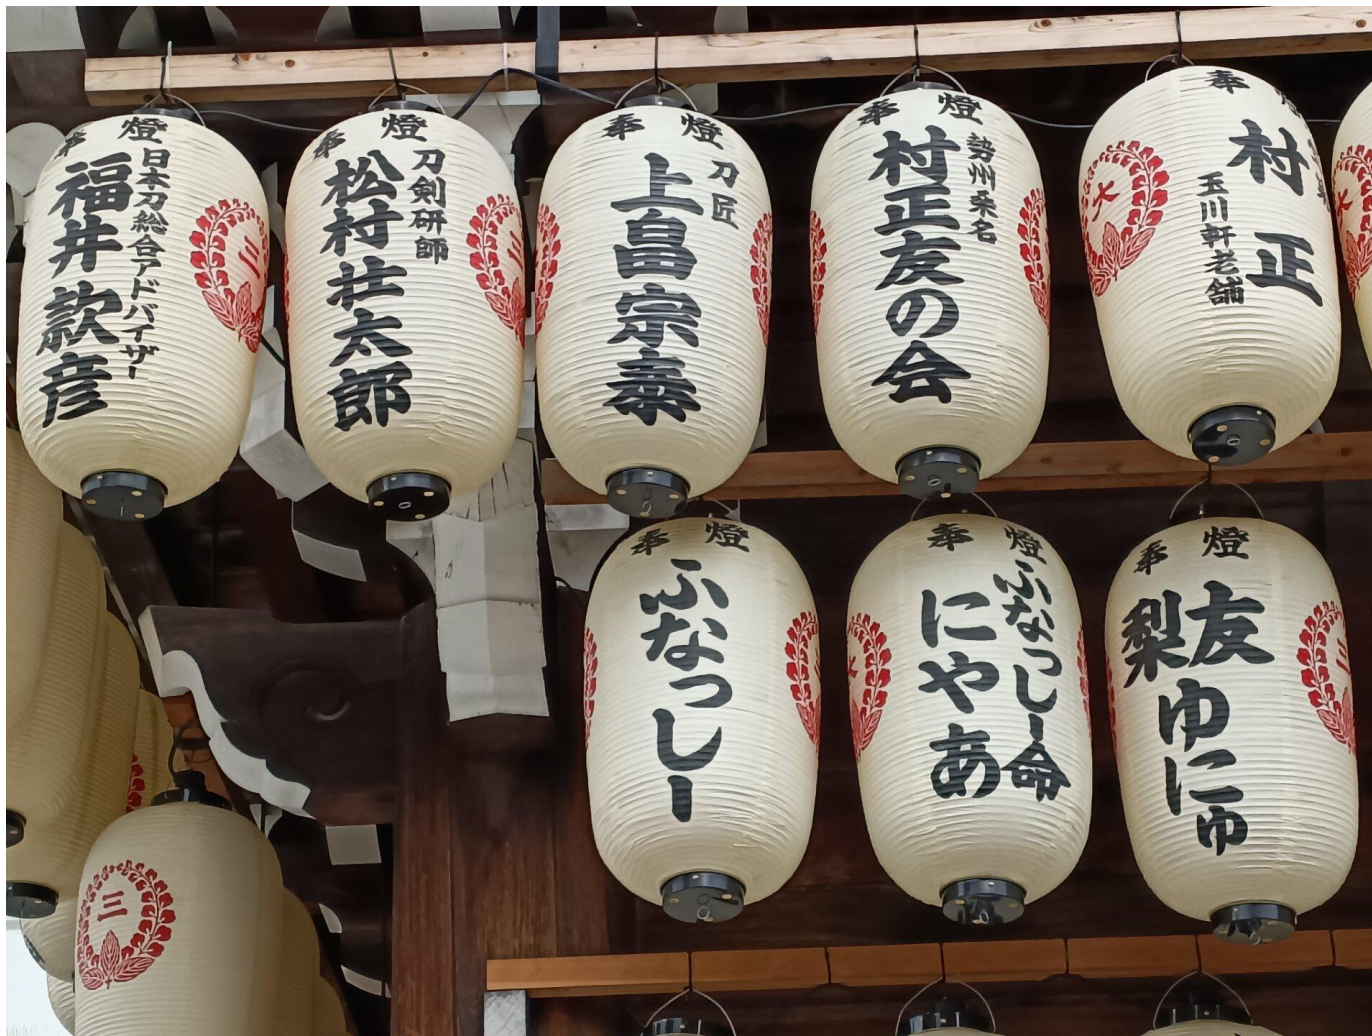 奉燈
日本刀総合アドバイザー
福井款彦
奉燈
刀剣研師
松村壮太郎
奉燈
刀匠
上畠宗泰
奉燈
勢州桑名
村正友の会
奉燈
村正
玉川軒老舗
大
三
三
大
奉燈
ふなっしー
奉燈
ふなっしー命
にやあ
奉燈
友
梨ゆにゅ
三
大
三
三